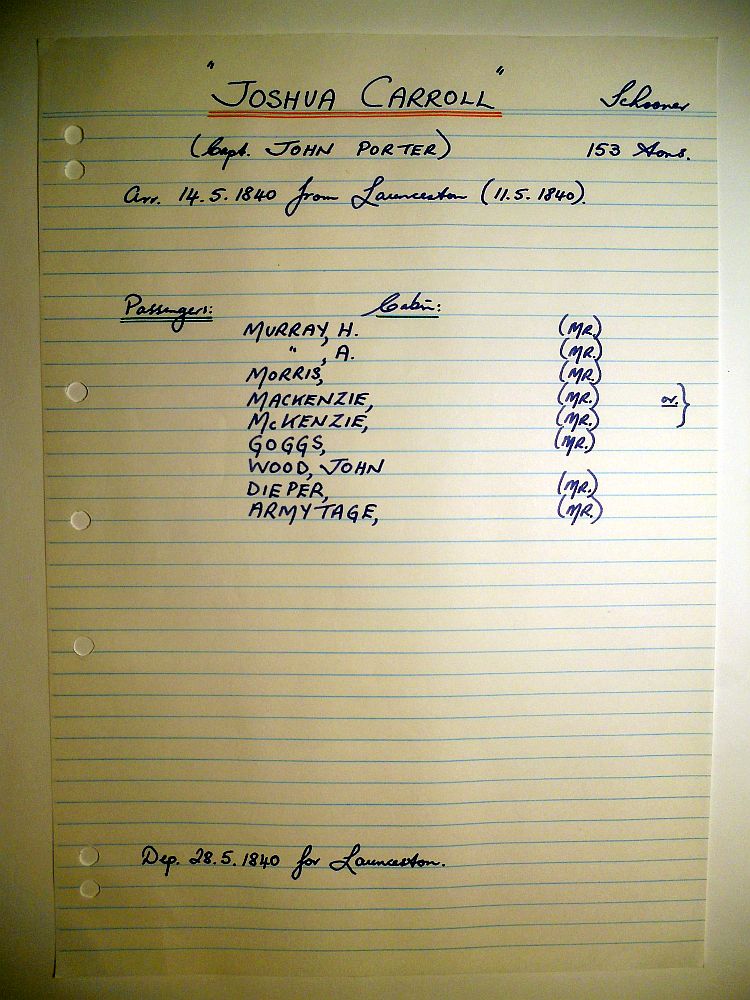 "JOSHUA CARROLL" Schooner
(Capt. JOHN PORTER) 153 tons.
Arr. 14.5.1840 from Launceston (11.5.1840).
Passengers: Cabin:
MURRAY, H. (MR.)
" , A. (MR.)
MORRIS, (MR.)
MACKENZIE, (MR.) or }
McKENZIE, (MR.)
GOGGS, (MR.)
WOOD, JOHN
DIEPER, (MR.)
ARMYTAGE, (MR.)
Dep. 28.5.1840 for Launceston.